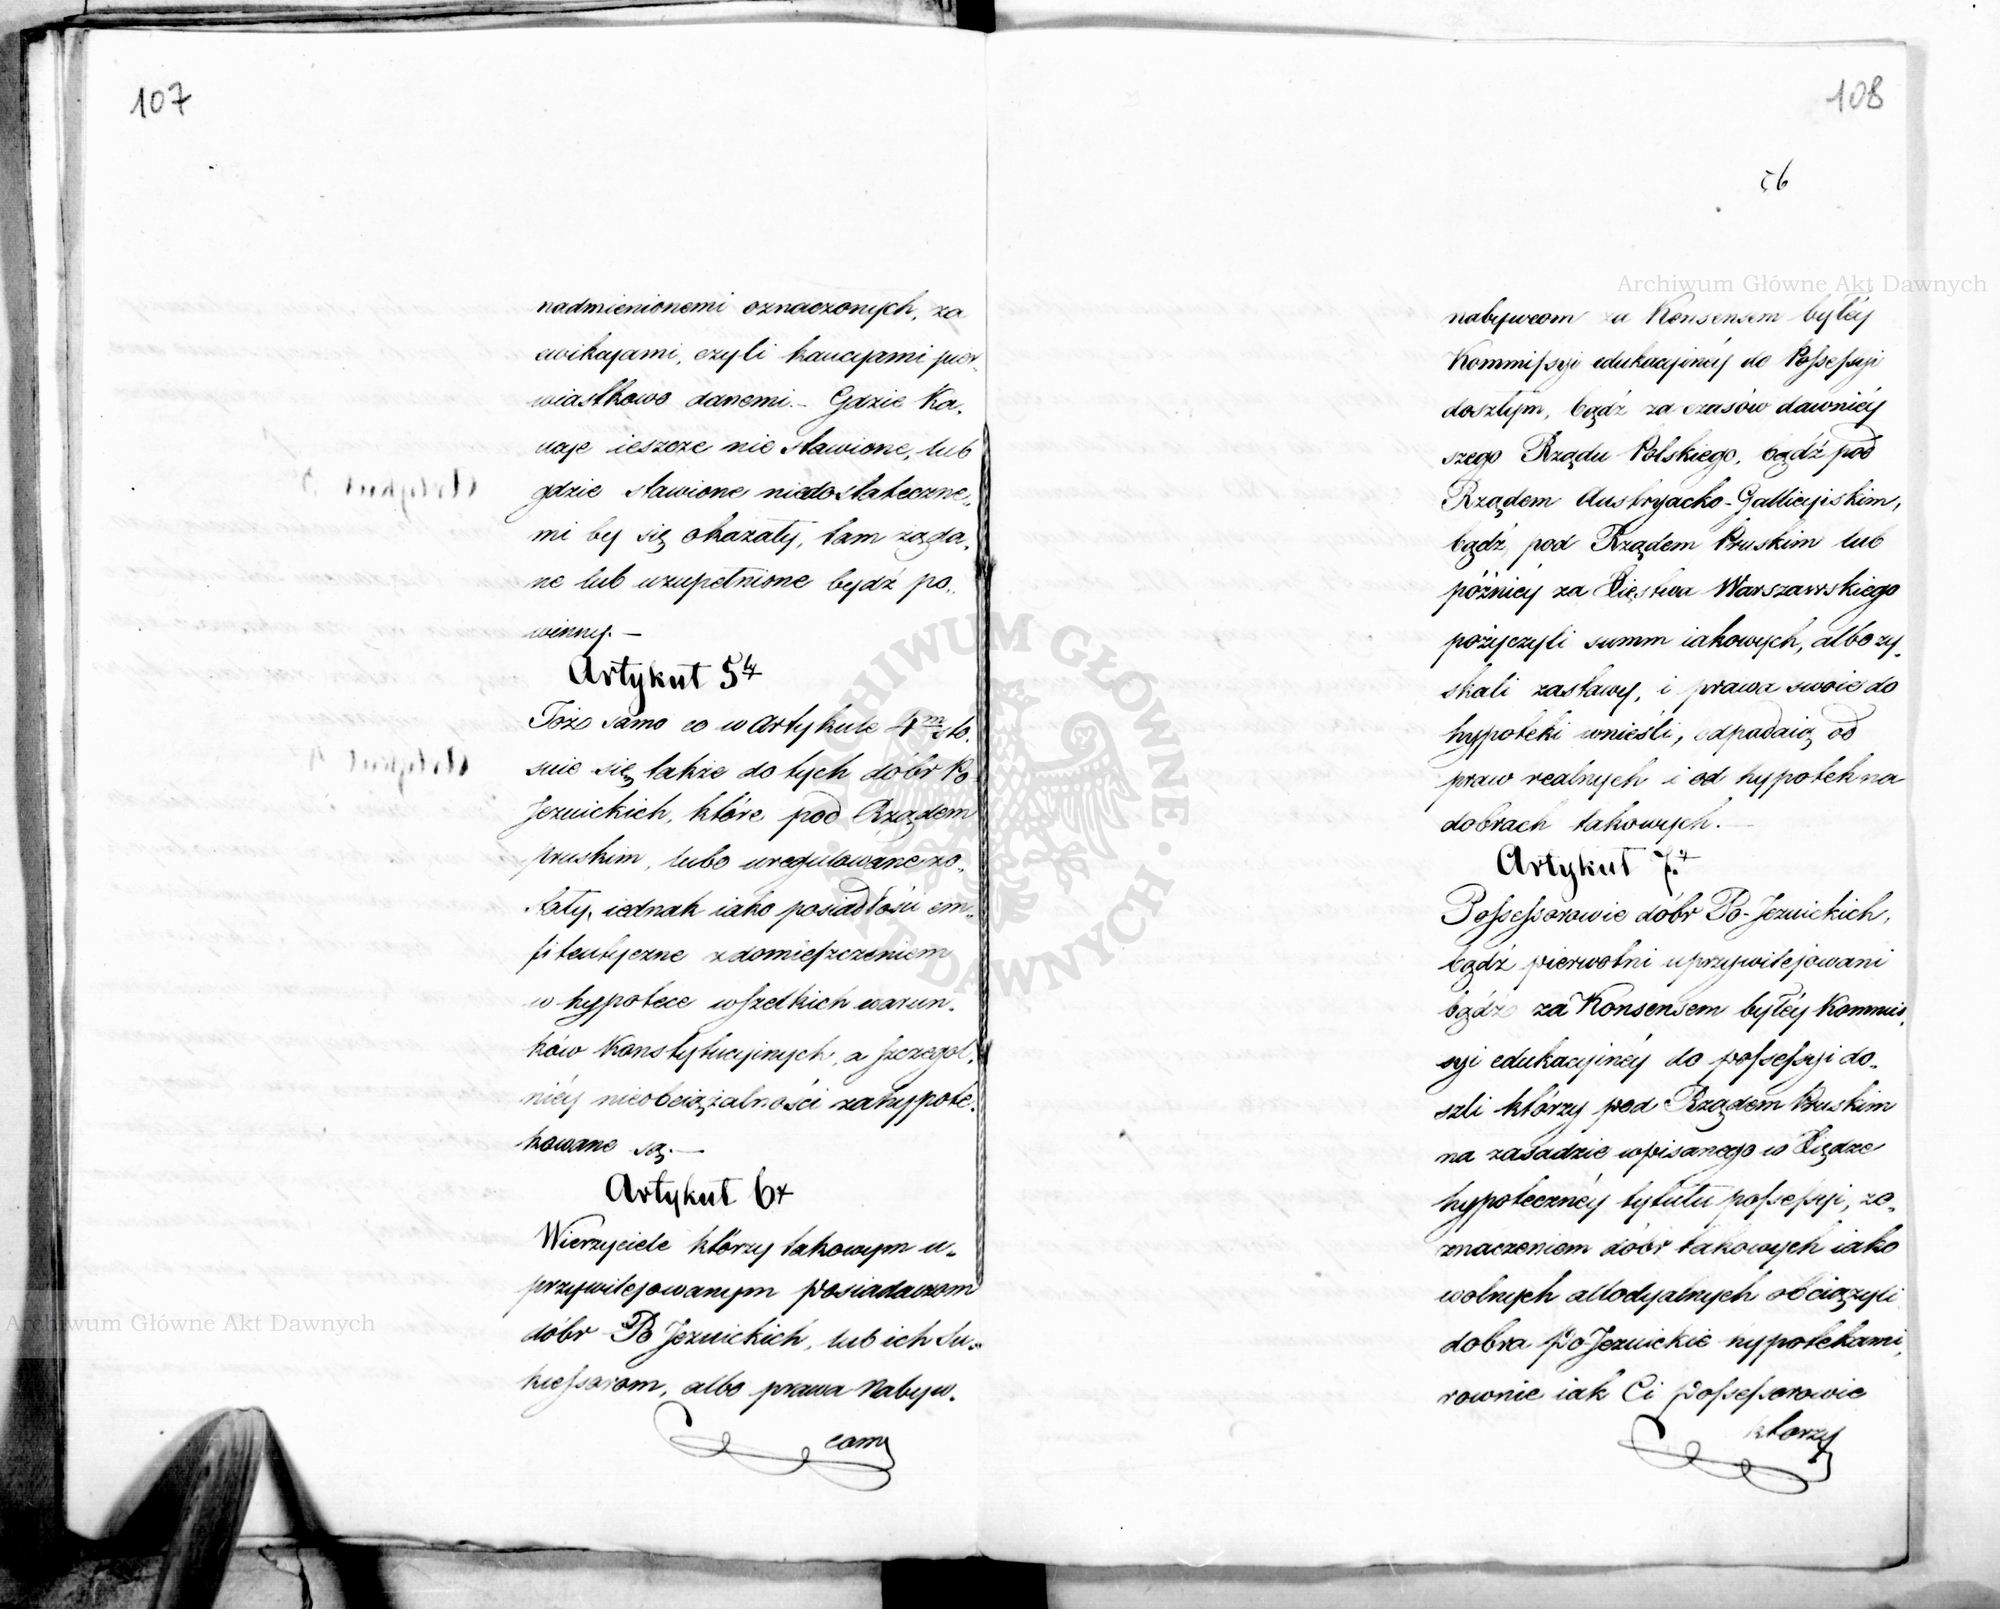 107
nadmienionemi oznaczonych, za
ewikcyami, czyli kaucyami pier-
wiastkowo danemi. - Gdzie Ka-
ucye ieszcze nie stawione, lub
gdzie stawione niedostateczne-
mi by się okazały, tam żąda-
ne lub uzupełnione bydź po-
winny. -
Artykuł 5ty
Toż samo co w Artykule 4m sto-
suie się także do tych dóbr Po
Jezuickich, które pod Rządem
pruskim, lubo uregulowane zo-
stały, iednak iako posiadłości em-
fiteutyczne z domieszczeniem
w hypotece wszelkich warun-
ków Konstytucyinych, a szczegól-
niéy nieobciążalności zahypote-
kowane są. -
Artykuł 6ty
Wierzyciele którzy takowym u-
przywilejowanym posiadaczom
dóbr Po Jezuickich, lub ich Su-
kcessorom, albo prawa Nabyw-
com
108
56
nabywcom za Konsensem byłéy
Kommissyi edukacyinéy do Possessyi
doszłym, bądź za czasów dawniéy
szego Rządu Polskiego, bądź pod
Rządem Austryacko-Gallicyiskim,
bądź pod Rządem Pruskim lub
późniéy za Xięstwa Warszawskiego
pożyczyli summ iakowych, albo zy-
skali zastawy, i prawa swoie do
hypoteki wnieśli, odpadaią od
praw realnych i od hypotek na
dobrach takowych. -
Artykuł 7y
Possessorowie dóbr Po-Jezuickich,
bądź pierwotni uprzywilejowani
bądź za Konsensem byłéy Kommis-
syi edukacyinéy do possessyi do-
szli którzy pod Rządem Pruskim
na zasadzie wpisanego w Xiędze
hypotecznéy tytułu possessyi, zo-
znaczeniem dóbr takowych iako
wolnych allodyalnych obciążyli
dobra Po-Jezuickie hypotekami,
rownie iak Ci Possessorowie
którzy
Archiwum Główne Akt Dawnych
Archiwum Główne Akt Dawnych
ARCHIWUM GŁÓWNE AKT DAWNYCH